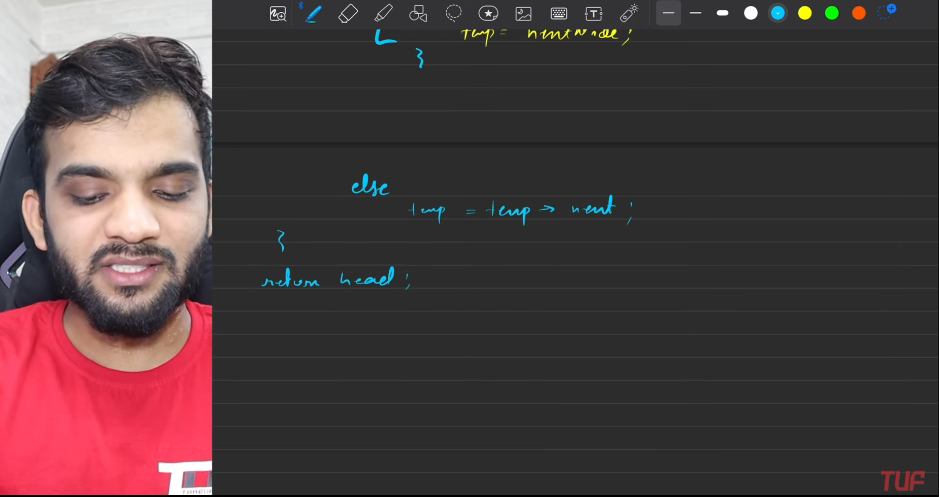 tmp = nextNode;
}
else
tmp = temp → next ;
}
return head ;
TUF